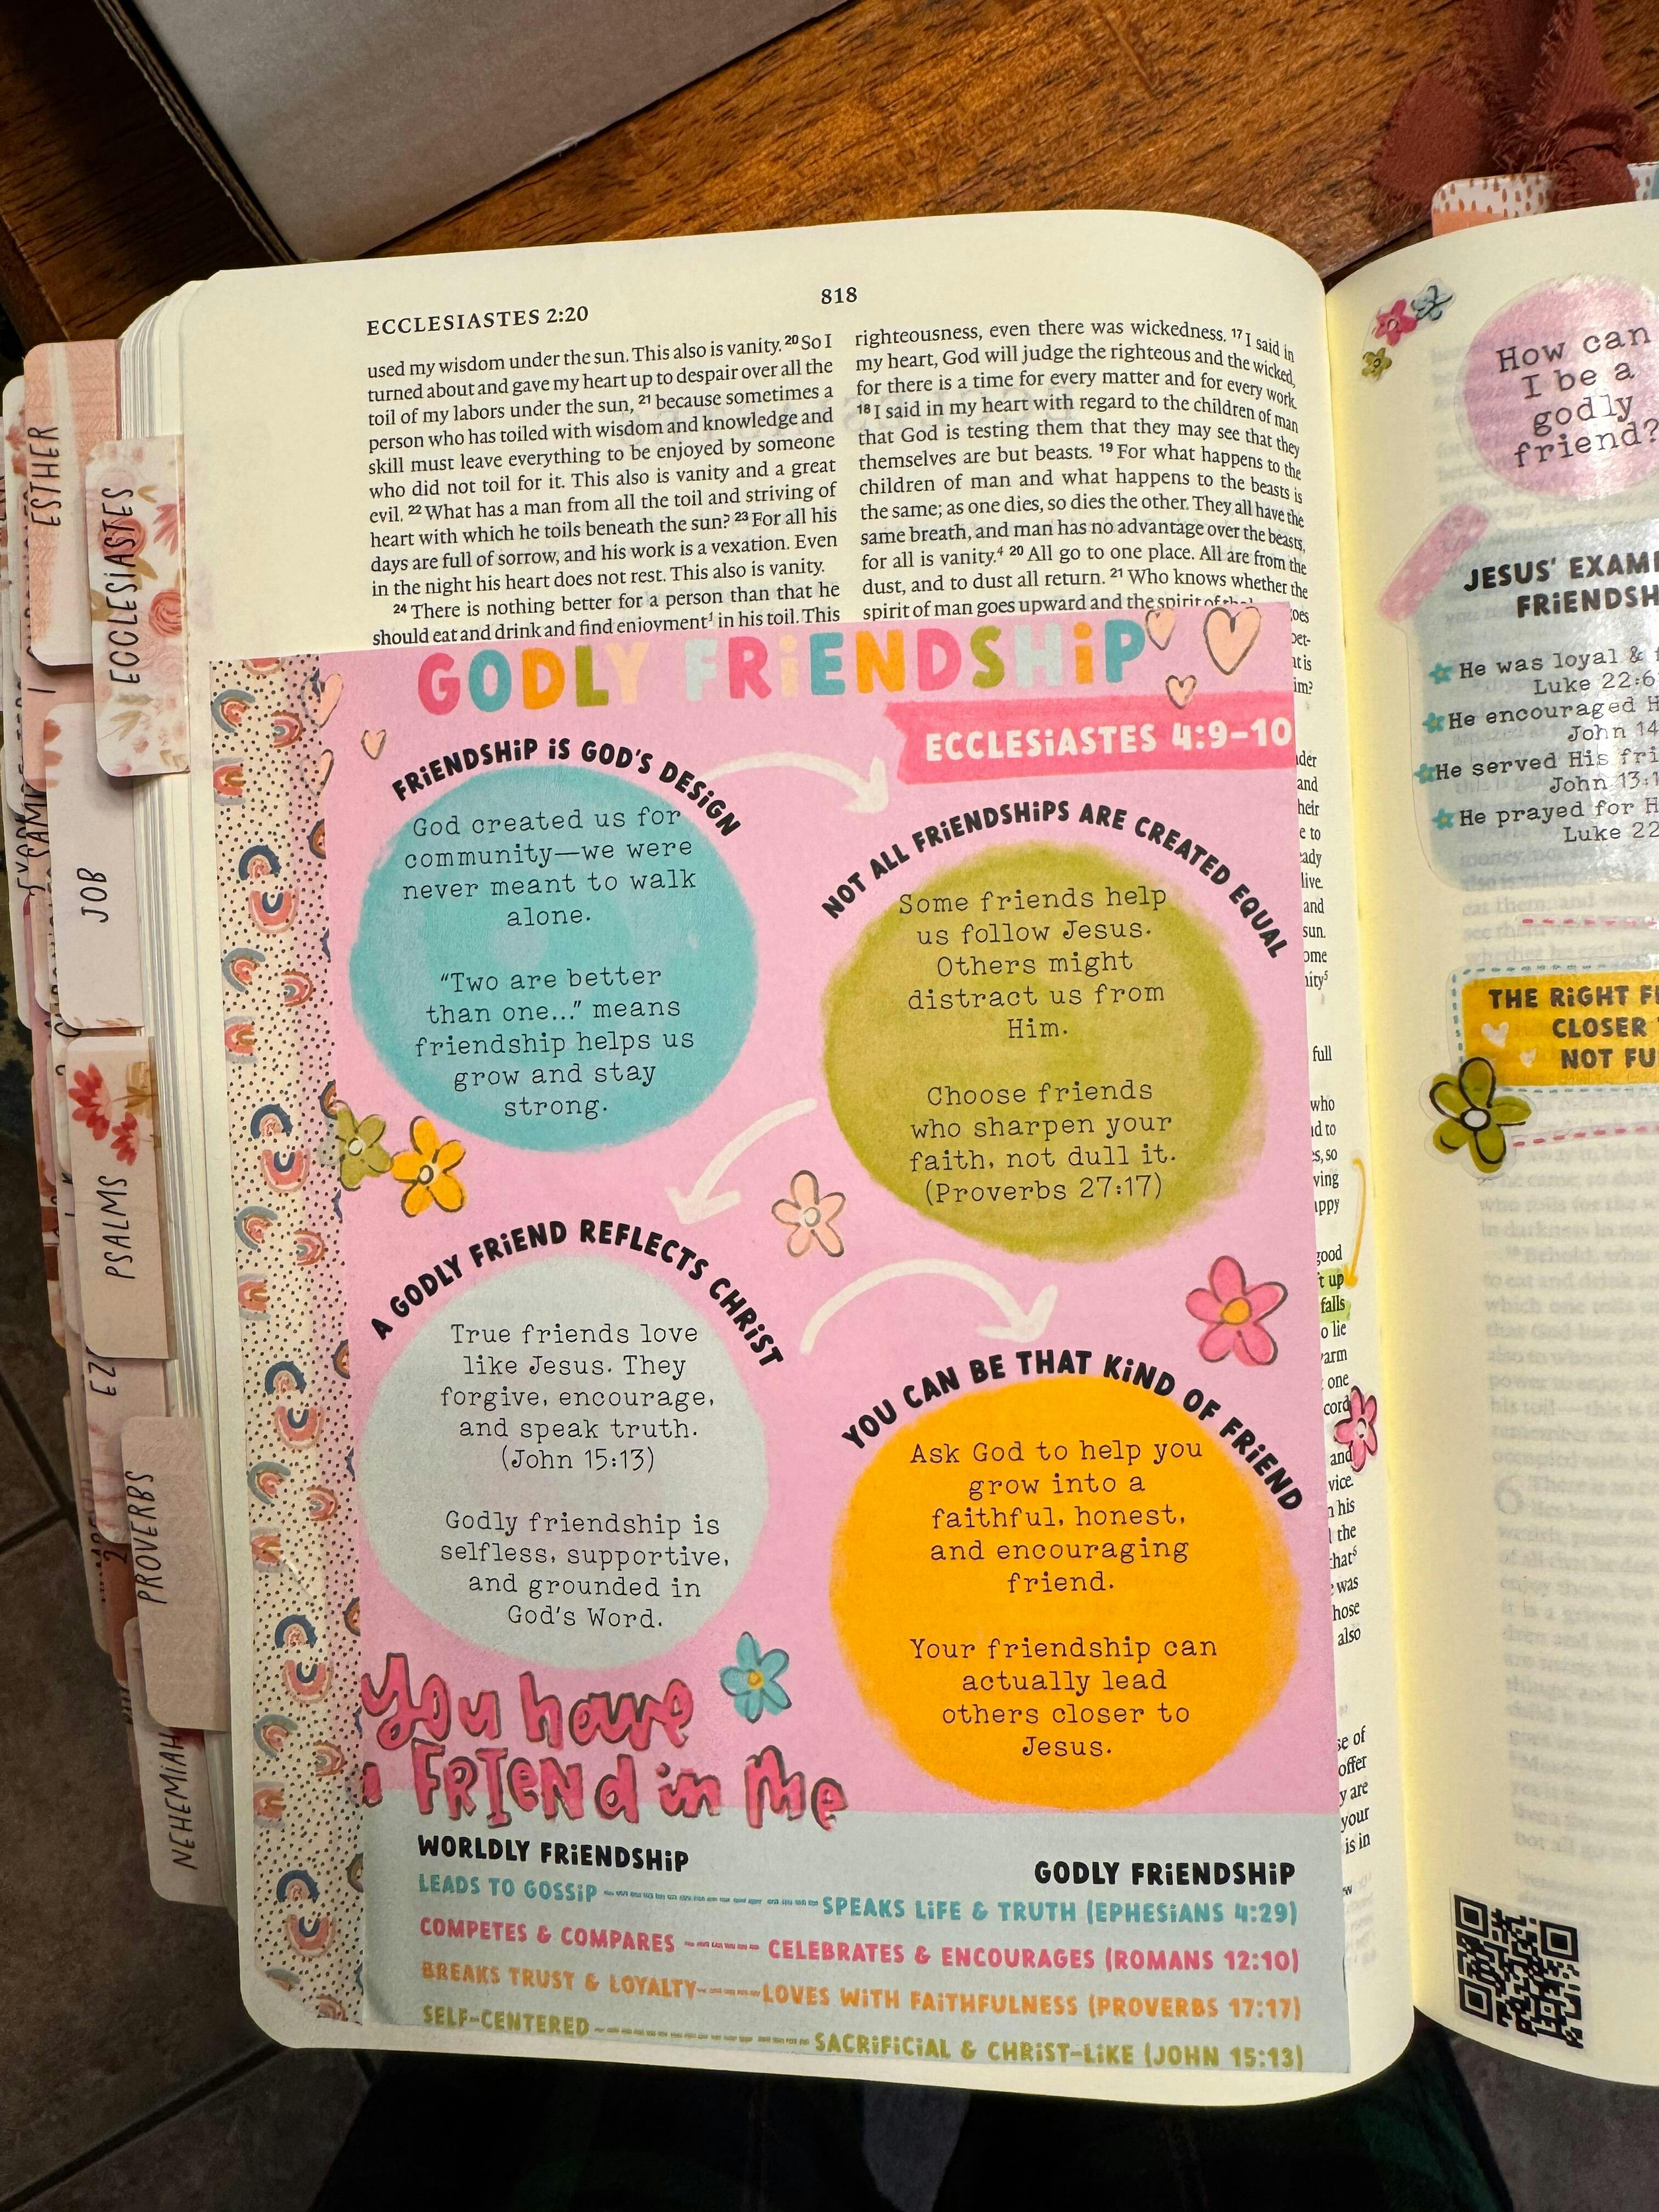 ECCLESIASTES 2:20
818
used my wisdom under the sun. This also is vanity. 20 So I
turned about and gave my heart up to despair over all the
toil of my labors under the sun, 21 because sometimes a
person who has toiled with wisdom and knowledge and
skill must leave everything to be enjoyed by someone
who did not toil for it. This also is vanity and a great
evil. 22 What has a man from all the toil and striving of
heart with which he toils beneath the sun? 23 For all his
days are full of sorrow, and his work is a vexation. Even
in the night his heart does not rest. This also is vanity.
24 There is nothing better for a person than that he
should eat and drink and find enjoyment1 in his toil. This
righteousness, even there was wickedness. 17 I said in
my heart, God will judge the righteous and the wicked,
for there is a time for every matter and for every work.
18 I said in my heart with regard to the children of man
that God is testing them that they may see that they
themselves are but beasts. 19 For what happens to the
children of man and what happens to the beasts is
the same; as one dies, so dies the other. They all have the
same breath, and man has no advantage over the beasts,
for all is vanity.4 20 All go to one place. All are from the
dust, and to dust all return. 21 Who knows whether the
spirit of man goes upward and the spirit of
GODLY FRiENDSHiP
ECCLESiASTES 4:9-10
FRiENDSHiP iS GOD'S DESiGN
God created us for
community—we were
never meant to walk
alone.
"Two are better
than one..." means
friendship helps us
grow and stay
strong.
NOT ALL FRiENDSHiPS ARE CREATED EQUAL
Some friends help
us follow Jesus.
Others might
distract us from
Him.
Choose friends
who sharpen your
faith, not dull it.
(Proverbs 27:17)
A GODLY FRiEND REFLECTS CHRiST
True friends love
like Jesus. They
forgive, encourage,
and speak truth.
(John 15:13)
Godly friendship is
selfless, supportive,
and grounded in
God's Word.
YOU CAN BE THAT KiND OF FRiEND
Ask God to help you
grow into a
faithful, honest,
and encouraging
friend.
Your friendship can
actually lead
others closer to
Jesus.
You have
a FRIeNd in Me
WORLDLY FRiENDSHiP
GODLY FRiENDSHiP
LEADS TO GOSSiP SPEAKS LiFE & TRUTH (EPHESiANS 4:29)
COMPETES & COMPARES CELEBRATES & ENCOURAGES (ROMANS 12:10)
BREAKS TRUST & LOYALTY LOVES WiTH FAiTHFULNESS (PROVERBS 17:17)
SELF-CENTERED SACRiFiCiAL & CHRiST-LiKE (JOHN 15:13)
ESTHER
ECCLESiASTES
JOB
PSALMS
PROVERBS
NEHEMiAH
How can
I be a
godly
friend?
JESUS' EXAM
FRiENDSH
He was loyal &
Luke 22:
He encouraged
John 14
He served His
John 13:1
He prayed for
Luke 22
THE RiGHT
CLOSER
NOT